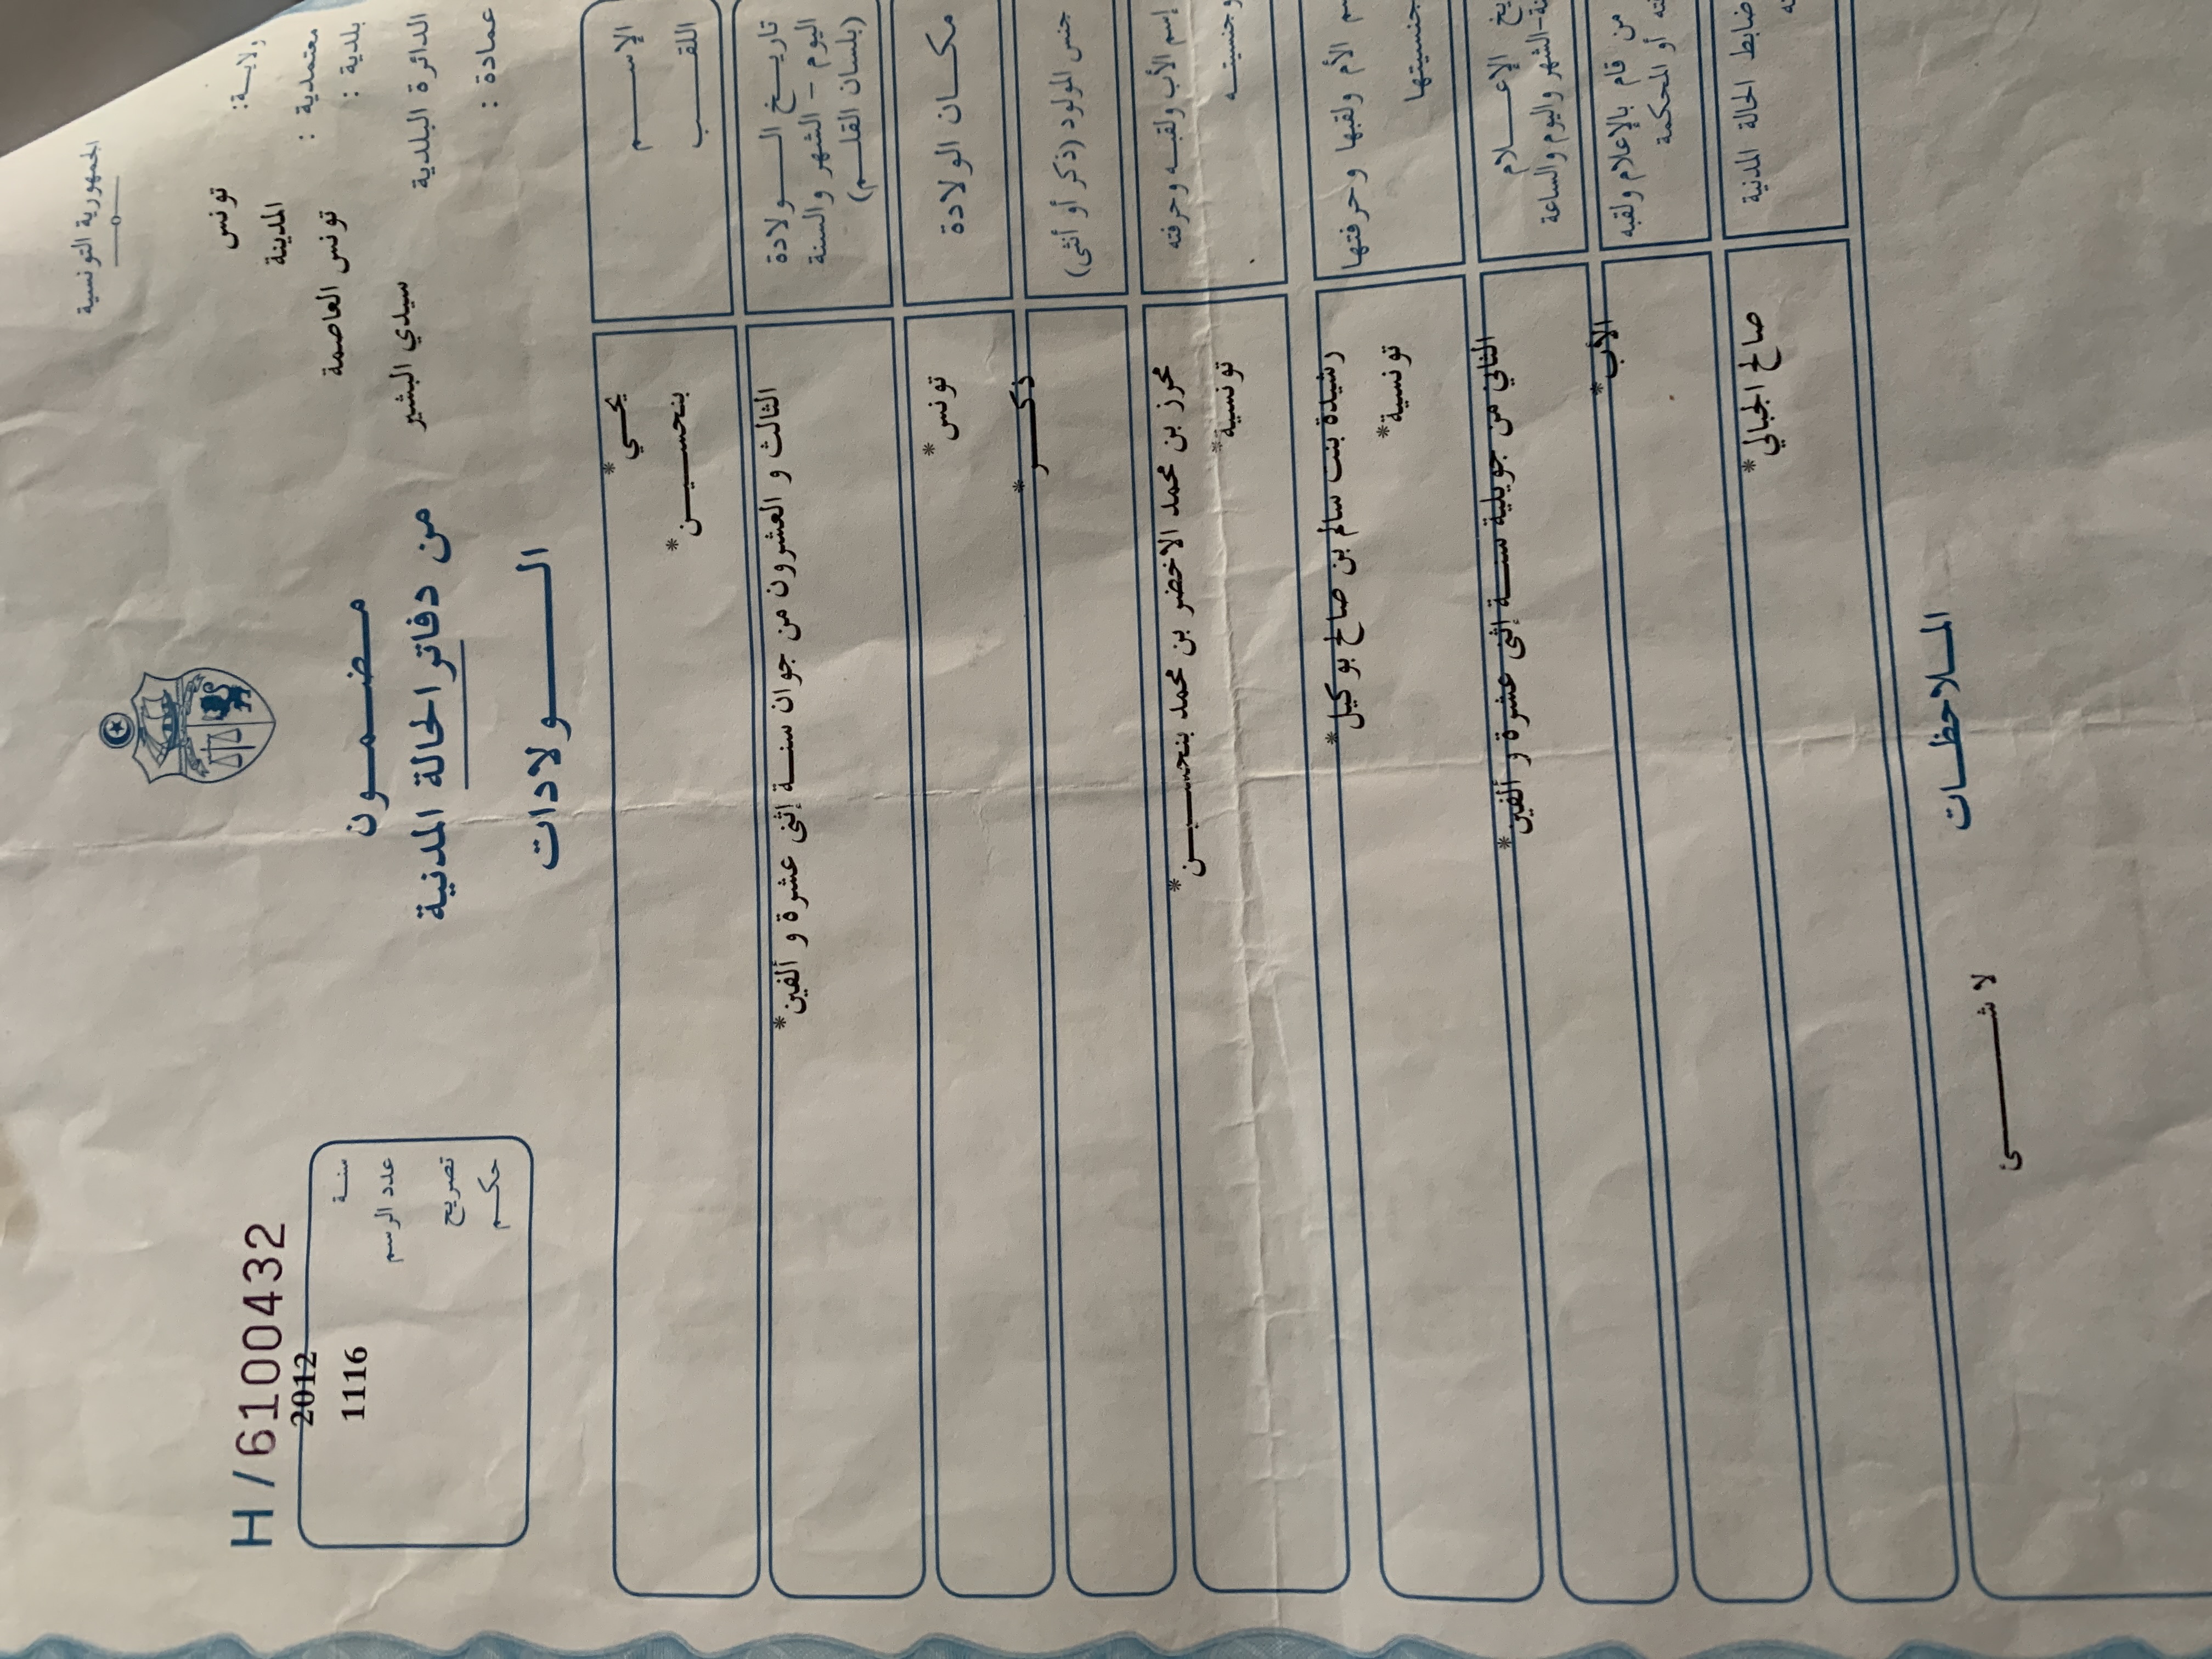 الجمهورية التونسية
ولاية: تونس
معتمدية : المدينة
بلدية : تونس العاصمة
الدائرة البلدية سيدي البشير
عمادة :
مضمون
من دفاتر الحالة المدنية
الولادات
H/6100432
سنة 2012
عدد الرسم 1116
تصريح
حكم
الإسم يحي*
اللقب بنحسين*
تاريخ الولادة
اليوم - الشهر والسنة
(بلسان القلم)
الثالث و العشرون من جوان سنة إثنى عشرة و ألفين*
مكان الولادة تونس*
جنس المولود (ذكر أو أنثى) ذكر*
إسم الأب ولقبه وحرفته
وجنسيته
محرز بن محمد الاخضر بن محمد بنحسين*
تونسية*
الأم ولقبها وحرفتها
جنسيتها
رشيدة بنت سالم بن صالح بوكيل*
تونسية*
الإعلام
الشهر واليوم والساعة
الثاني من جويلية سنة إثنى عشرة و ألفين*
من قام بالإعلام ولقبه
أو المحكمة
الأب*
ضابط الحالة المدنية
صالح الجبالي*
الملاحظات
لا شئ